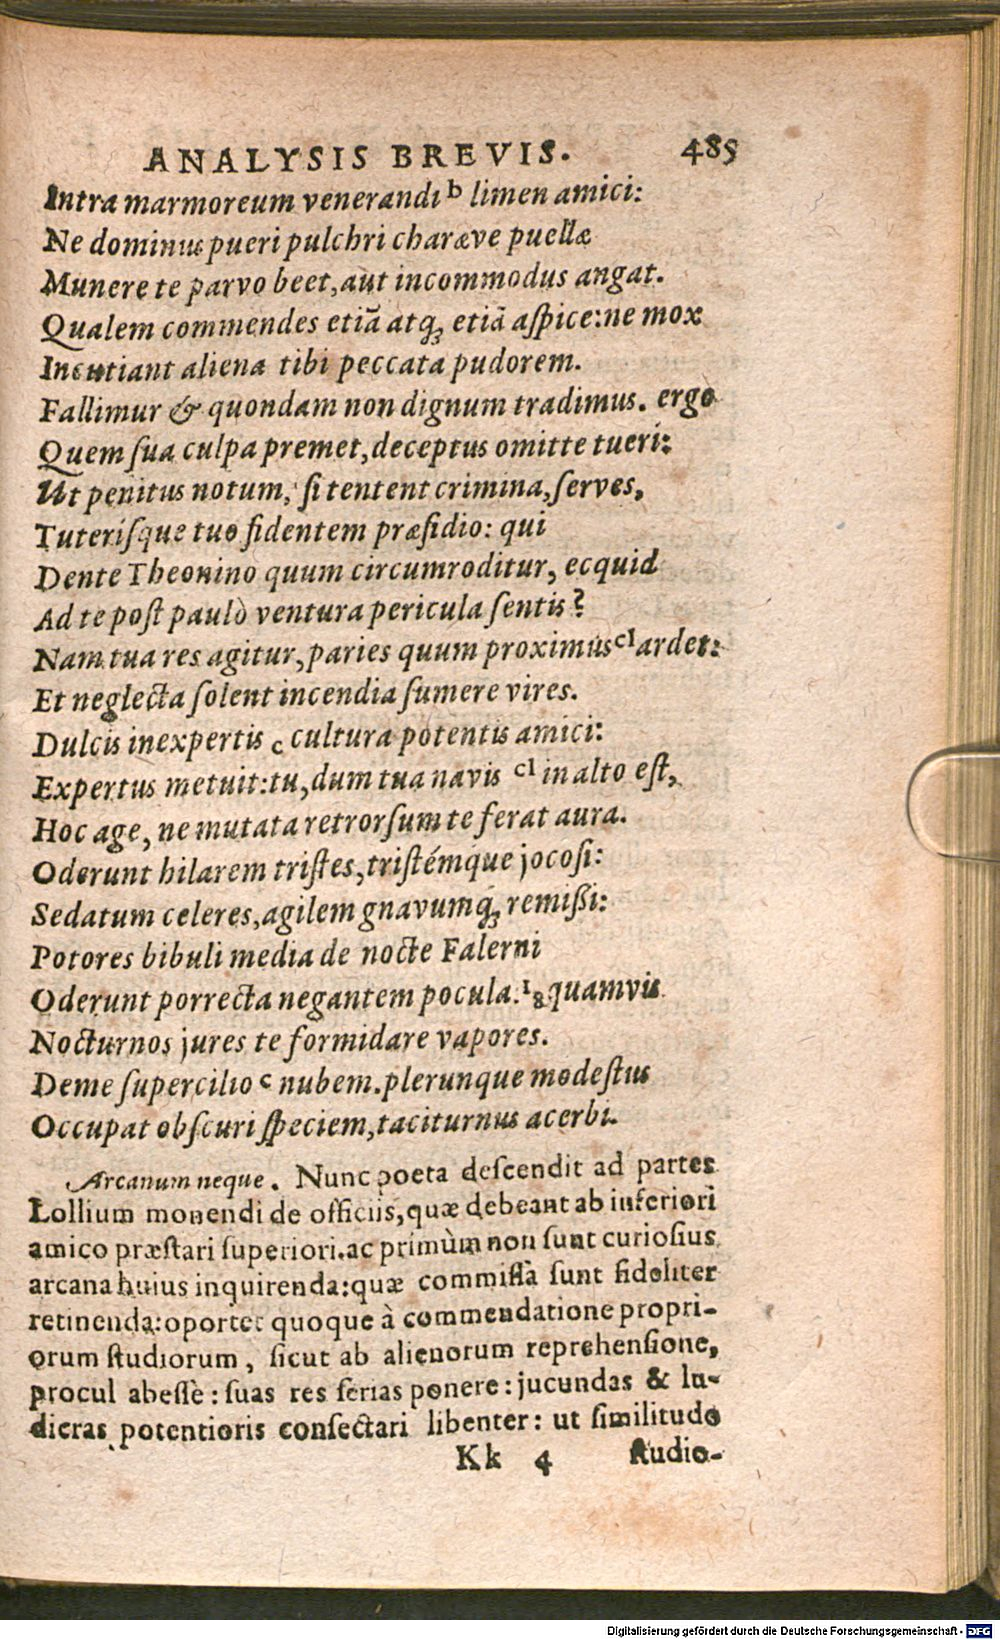 ANALYSIS BREVIS. 485
Intra marmoreum venerandi b limen amici:
Ne dominus pueri pulchri charæve puellæ
Munere te parvo beet, aut incommodus angat.
Qualem commendes etiā atq; etiā aſpice: ne mox
Incutiant aliena tibi peccata pudorem.
Fallimur & quondam non dignum tradimus. ergo
Quem ſua culpa premet, deceptus omitte tueri:
Ut penitus notum, ſi tentent crimina, ſerves,
Tuteriſque tuo fidentem præſidio: qui
Dente Theonino quum circumroditur, ecquid
Ad te poſt paulò ventura pericula ſentis?
Nam tua res agitur, paries quum proximus cl ardet:
Et neglecta ſolent incendia ſumere vires.
Dulcis inexpertis c cultura potentis amici:
Expertus metuit: tu, dum tua navis cl in alto eſt,
Hoc age, ne mutata retrorſum te ferat aura.
Oderunt hilarem triſtes, triſtémque jocoſi:
Sedatum celeres, agilem gnavumq; remiſſi:
Potores bibuli media de nocte Falerni
Oderunt porrecta negantem pocula. 18 quamvis
Nocturnos jures te formidare vapores.
Deme ſupercilio c nubem. plerunque modeſtus
Occupat obſcuri ſpeciem, taciturnus acerbi.
Arcanum neque. Nunc poeta deſcendit ad partes
Lollium monendi de officiis, quæ debeant ab inferiori
amico præſtari ſuperiori. ac primùm non ſunt curioſius
arcana huius inquirenda: quæ commiſſa ſunt fideliter
retinenda: oportet quoque à commendatione propri-
orum ſtudiorum, ſicut ab alienorum reprehenſione,
procul abeſſe: ſuas res ſerias ponere: jucundas & lu-
dicras potentioris conſectari libenter: ut ſimilitudo
Kk 4 ſtudio-
Digitalisierung gefördert durch die Deutsche Forschungsgemeinschaft - DFG